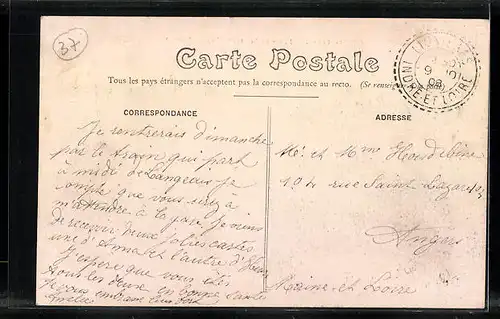 37
Carte Postale
Tous les pays étrangers n'acceptent pas la correspondance au recto. (Se renseigner
CORRESPONDANCE
ADRESSE
INDRE-ET-LOIRE
Je rentrerais dimanche
par le train qui part
à midi de Langeais. Je
compte que vous serez à
m'attendre à la gare. Je viens
de recevoir deux jolies cartes
une d'Anna et l'autre
J'espère que vous êtes
tous les deux en bonne santé
Je vous embrasse
Mr et Mme
104 rue Saint Lazare
Angers
Maine et Loire